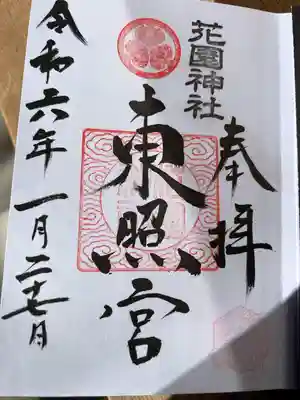 花園神社
奉拝
東照宮
令和六年一月二十七日